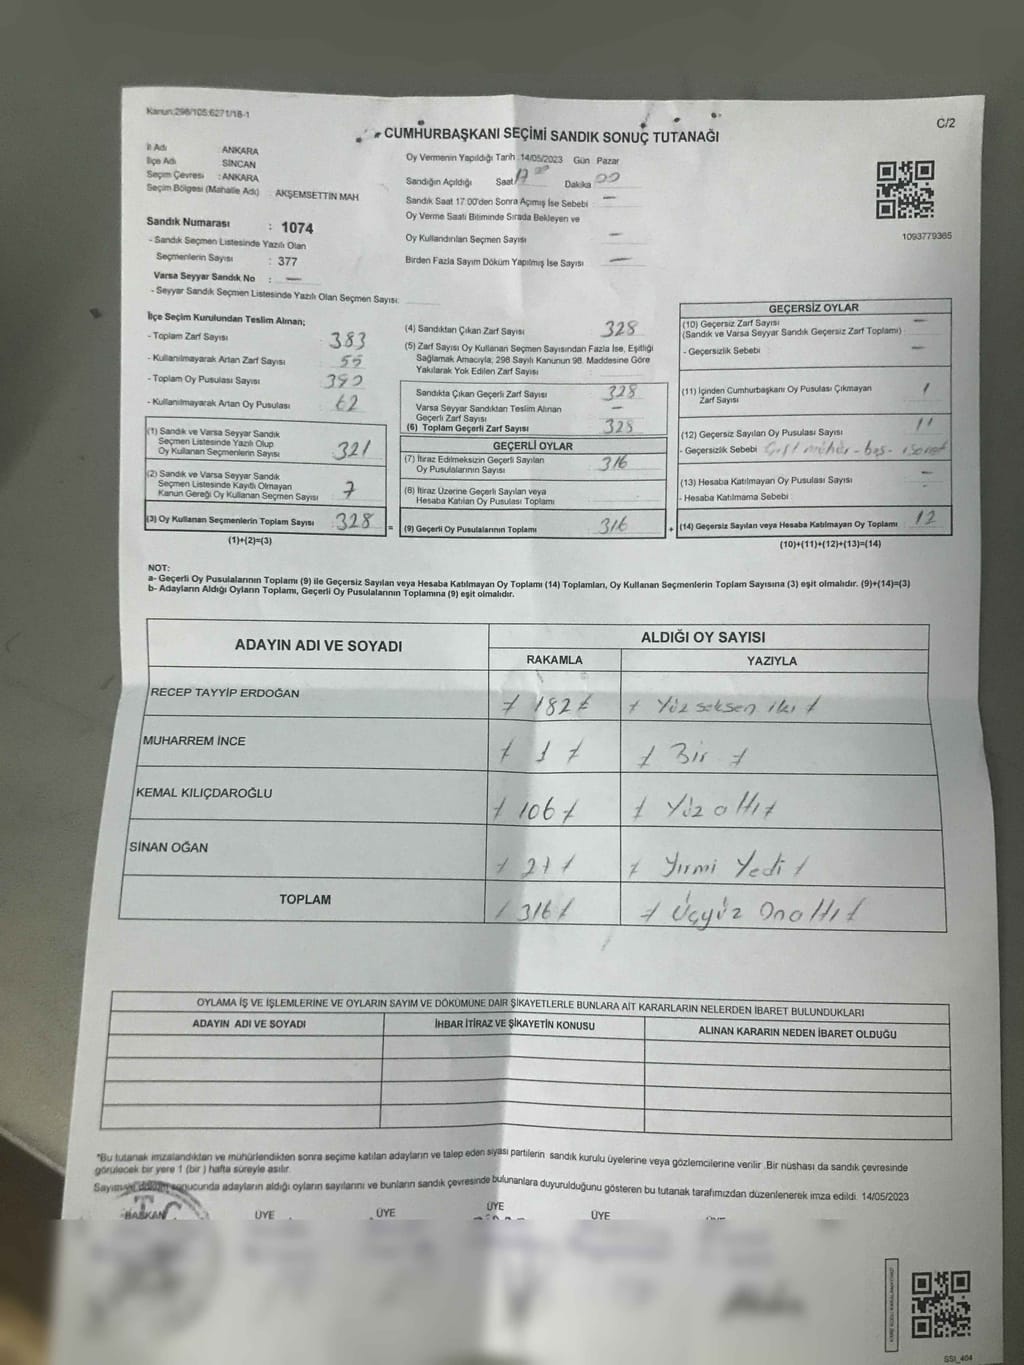 Kanun:298/105:6271/18-1
C/2
CUMHURBAŞKANI SEÇİMİ SANDIK SONUÇ TUTANAĞI
İl Adı ANKARA
İlçe Adı SİNCAN
Seçim Çevresi : ANKARA
Seçim Bölgesi (Mahalle Adı) : AKŞEMSETTİN MAH
Sandık Numarası : 1074
- Sandık Seçmen Listesinde Yazılı Olan
Seçmenlerin Sayısı : 377
Varsa Seyyar Sandık No : —
- Seyyar Sandık Seçmen Listesinde Yazılı Olan Seçmen Sayısı:
Oy Vermenin Yapıldığı Tarih 14/05/2023 Gün Pazar
Sandığın Açıldığı Saat 17 00 Dakika 00
Sandık Saat 17.00'den Sonra Açımış İse Sebebi —
Oy Verme Saati Bitiminde Sırada Bekleyen ve
Oy Kullandırılan Seçmen Sayısı —
Birden Fazla Sayım Döküm Yapılmış İse Sayısı —
1093779365
İlçe Seçim Kurulundan Teslim Alınan;
- Toplam Zarf Sayısı 383
- Kullanılmayarak Artan Zarf Sayısı 55
- Toplam Oy Pusulası Sayısı 390
- Kullanılmayarak Artan Oy Pusulası 62
(1) Sandık ve Varsa Seyyar Sandık
Seçmen Listesinde Yazılı Olup
Oy Kullanan Seçmenlerin Sayısı 321
(2) Sandık ve Varsa Seyyar Sandık
Seçmen Listesinde Kayıtlı Olmayan
Kanun Gereği Oy Kullanan Seçmen Sayısı 7
(3) Oy Kullanan Seçmenlerin Toplam Sayısı 328 =
(1)+(2)=(3)
(4) Sandıktan Çıkan Zarf Sayısı 328
(5) Zarf Sayısı Oy Kullanan Seçmen Sayısından Fazla İse, Eşitliği
Sağlamak Amacıyla, 298 Sayılı Kanunun 98. Maddesine Göre
Yakılarak Yok Edilen Zarf Sayısı
Sandıkta Çıkan Geçerli Zarf Sayısı 328
Varsa Seyyar Sandıktan Teslim Alınan
Geçerli Zarf Sayısı —
(6) Toplam Geçerli Zarf Sayısı 328
GEÇERLİ OYLAR
(7) İtiraz Edilmeksizin Geçerli Sayılan
Oy Pusulalarının Sayısı 316
(8) İtiraz Üzerine Geçerli Sayılan veya
Hesaba Katılan Oy Pusulası Toplamı
(9) Geçerli Oy Pusulalarının Toplamı 316 +
GEÇERSİZ OYLAR
(10) Geçersiz Zarf Sayısı —
(Sandık ve Varsa Seyyar Sandık Geçersiz Zarf Toplamı)
- Geçersizlik Sebebi : —
(11) İçinden Cumhurbaşkanı Oy Pusulası Çıkmayan
Zarf Sayısı 1
(12) Geçersiz Sayılan Oy Pusulası Sayısı 11
- Geçersizlik Sebebi Çift mühür - boş - işaret
(13) Hesaba Katılmayan Oy Pusulası Sayısı —
- Hesaba Katılmama Sebebi : —
(14) Geçersiz Sayılan veya Hesaba Katılmayan Oy Toplamı 12
(10)+(11)+(12)+(13)=(14)
NOT:
a- Geçerli Oy Pusulalarının Toplamı (9) ile Geçersiz Sayılan veya Hesaba Katılmayan Oy Toplamı (14) Toplamları, Oy Kullanan Seçmenlerin Toplam Sayısına (3) eşit olmalıdır. (9)+(14)=(3)
b- Adayların Aldığı Oyların Toplamı, Geçerli Oy Pusulalarının Toplamına (9) eşit olmalıdır.
ADAYIN ADI VE SOYADI ALDIĞI OY SAYISI
RAKAMLA YAZIYLA
RECEP TAYYİP ERDOĞAN 182 Yüz seksen iki
MUHARREM İNCE 1 Bir
KEMAL KILIÇDAROĞLU 106 Yüz altı
SİNAN OĞAN 27 Yirmi Yedi
TOPLAM 316 Üçyüz Onaltı
OYLAMA İŞ VE İŞLEMLERİNE VE OYLARIN SAYIM VE DÖKÜMÜNE DAİR ŞİKAYETLERLE BUNLARA AİT KARARLARIN NELERDEN İBARET BULUNDUKLARI
ADAYIN ADI VE SOYADI İHBAR İTİRAZ VE ŞİKAYETİN KONUSU ALINAN KARARIN NEDEN İBARET OLDUĞU
*Bu tutanak imzalandıktan ve mühürlendikten sonra seçime katılan adayların ve talep eden siyasi partilerin sandık kurulu üyelerine veya gözlemcilerine verilir .Bir nüshası da sandık çevresinde
görülecek bir yere 1 (bir ) hafta süreyle asılır.
Sayım ve döküm sonucunda adayların aldığı oyların sayılarını ve bunların sandık çevresinde bulunanlara duyurulduğunu gösteren bu tutanak tarafımızdan düzenlenerek imza edildi. 14/05/2023
BAŞKAN ÜYE ÜYE ÜYE ÜYE
SSI_404